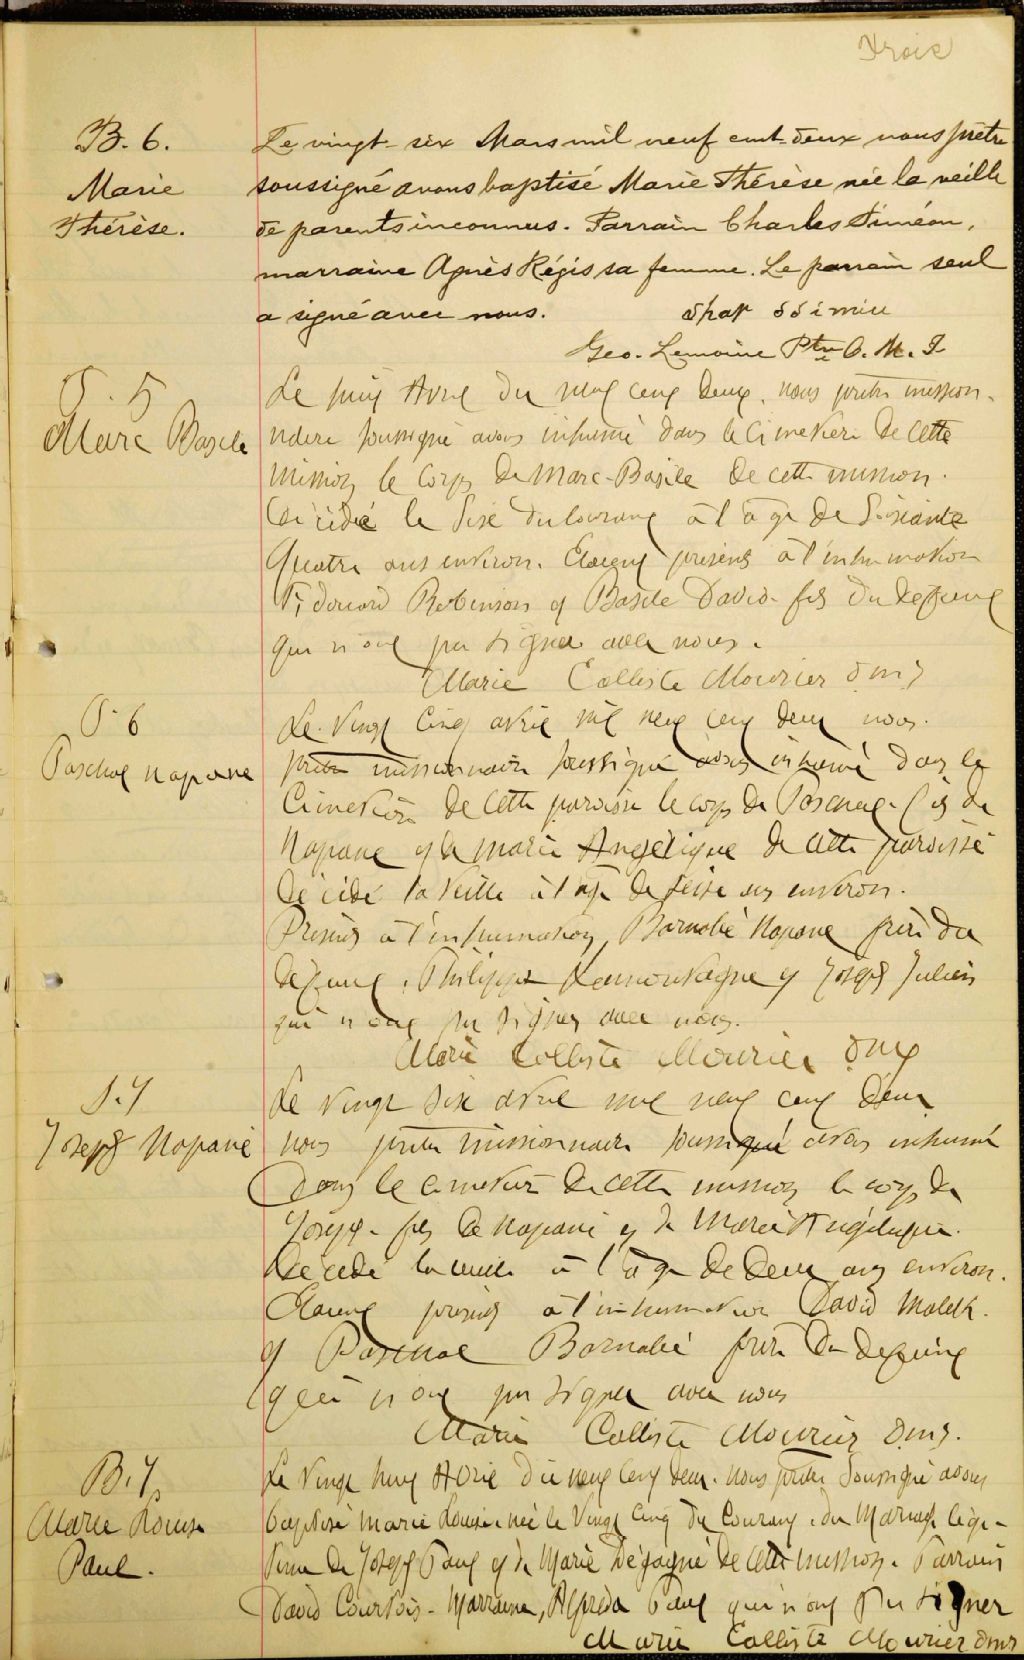 Trois
B. 6.
Marie
Thérèse.
Le vingt-six Mars mil neuf cent deux nous prêtre
soussigné avons baptisé Marie Thérèse née la veille
de parents inconnus. Parrain Charles Siméon,
marraine Agnès Régis sa femme. Le parrain seul
a signé avec nous.
Geo. Lemoine Ptre O. M. I
S. 5
Marc Basile
Le huit Avril neuf cent deux, nous prêtre mission-
naire soussigné avons inhumé dans le Cimetière de cette
mission le corps de Marc-Basile de cette mission.
décidé le Six du courant à l'âge de Soixante
Quatre ans environ. Étaient présents à l'inhumation
Édouard Robinson et Basile David fils du defunt
qui n'ont pu signer avec nous.
Marie Calliste Mourier omi
S. 6
Paschal Napane
Le Vingt Cinq avril mil neuf cent deux nous
prêtre missionnaire soussigné avons inhumé dans le
Cimetière de cette paroisse le corps de Paschal fils de
Napane et de Marie Angélique de cette paroisse
décidé la veille à l'âge de seize ans environ.
Présents à l'inhumation, Barnabé Napane frère du
defunt, Philippe Lamontagne et Joseph Julien
qui n'ont pu signer avec nous.
Marie Calliste Mourier omi
S. 7
Joseph Napane
Le vingt six avril mil neuf cent deux
nous prêtre missionnaire soussigné avons inhumé
dans le cimetière de cette mission le corps de
Joseph fils de Napane et de Marie Angélique.
Décédé la veille à l'âge de deux ans environ.
Étaient présents à l'inhumation David Malek.
et Paschal Barnabé frère du defunt
qui n'ont pu signer avec nous
Marie Calliste Mourier omi.
B. 7.
Marie Louise
Paul.
Le Vingt Neuf Avril neuf cent deux. nous prêtre Soussigné avons
baptisé Marie Louise née le Vingt Cinq du Courant, du Mariage légi-
time de Joseph Paul et de Marie Dégagné de cette mission. Parrain
David Courtois - Marraine, Alfréda Paul qui n'ont pu signer
Marie Calliste Mourier omi